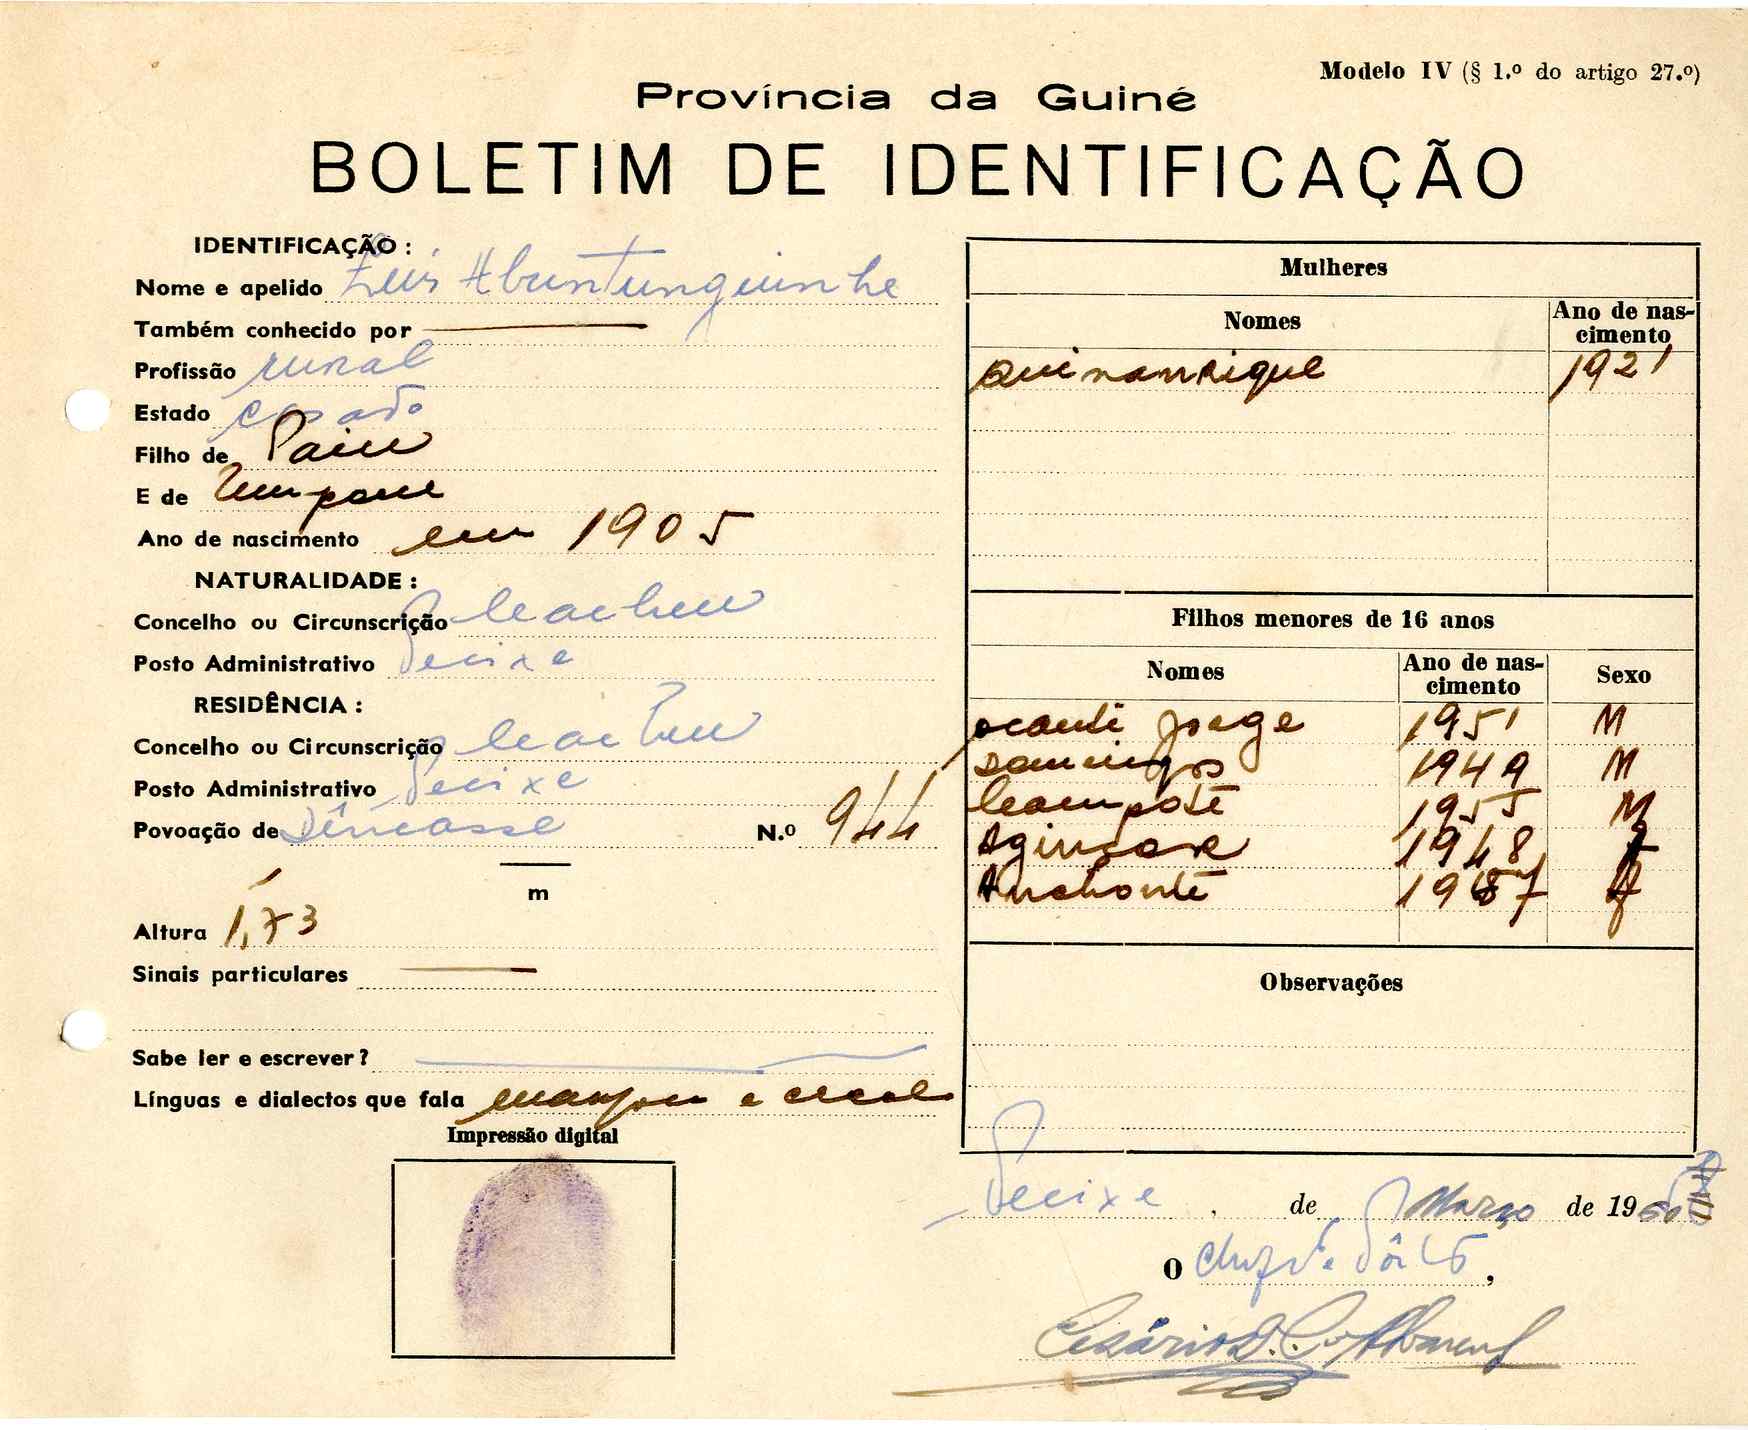 Modelo IV (§ 1.º do artigo 27.º)
Província da Guiné
BOLETIM DE IDENTIFICAÇÃO
IDENTIFICAÇÃO:
Nome e apelido Luis
Também conhecido por
Profissão rural
Estado casado
Filho de
E de
Ano de nascimento em 1905
NATURALIDADE:
Concelho ou Circunscrição Cacheu
Posto Administrativo Pecixe
RESIDÊNCIA:
Concelho ou Circunscrição Cacheu
Posto Administrativo Pecixe
Povoação de N.º 944
m
Altura 1,73
Sinais particulares
Sabe ler e escrever?
Línguas e dialectos que fala e
Impressão digital
Mulheres
Nomes Ano de nascimento
Quinanrique 1921
Filhos menores de 16 anos
Nomes Ano de nascimento Sexo
Jorge 1951 M
Domingos 1949 M
Campoté 1955 M
1948
Observações
Pecixe, de Março de 19
O Chefe de Posto,
Cesário D. C.